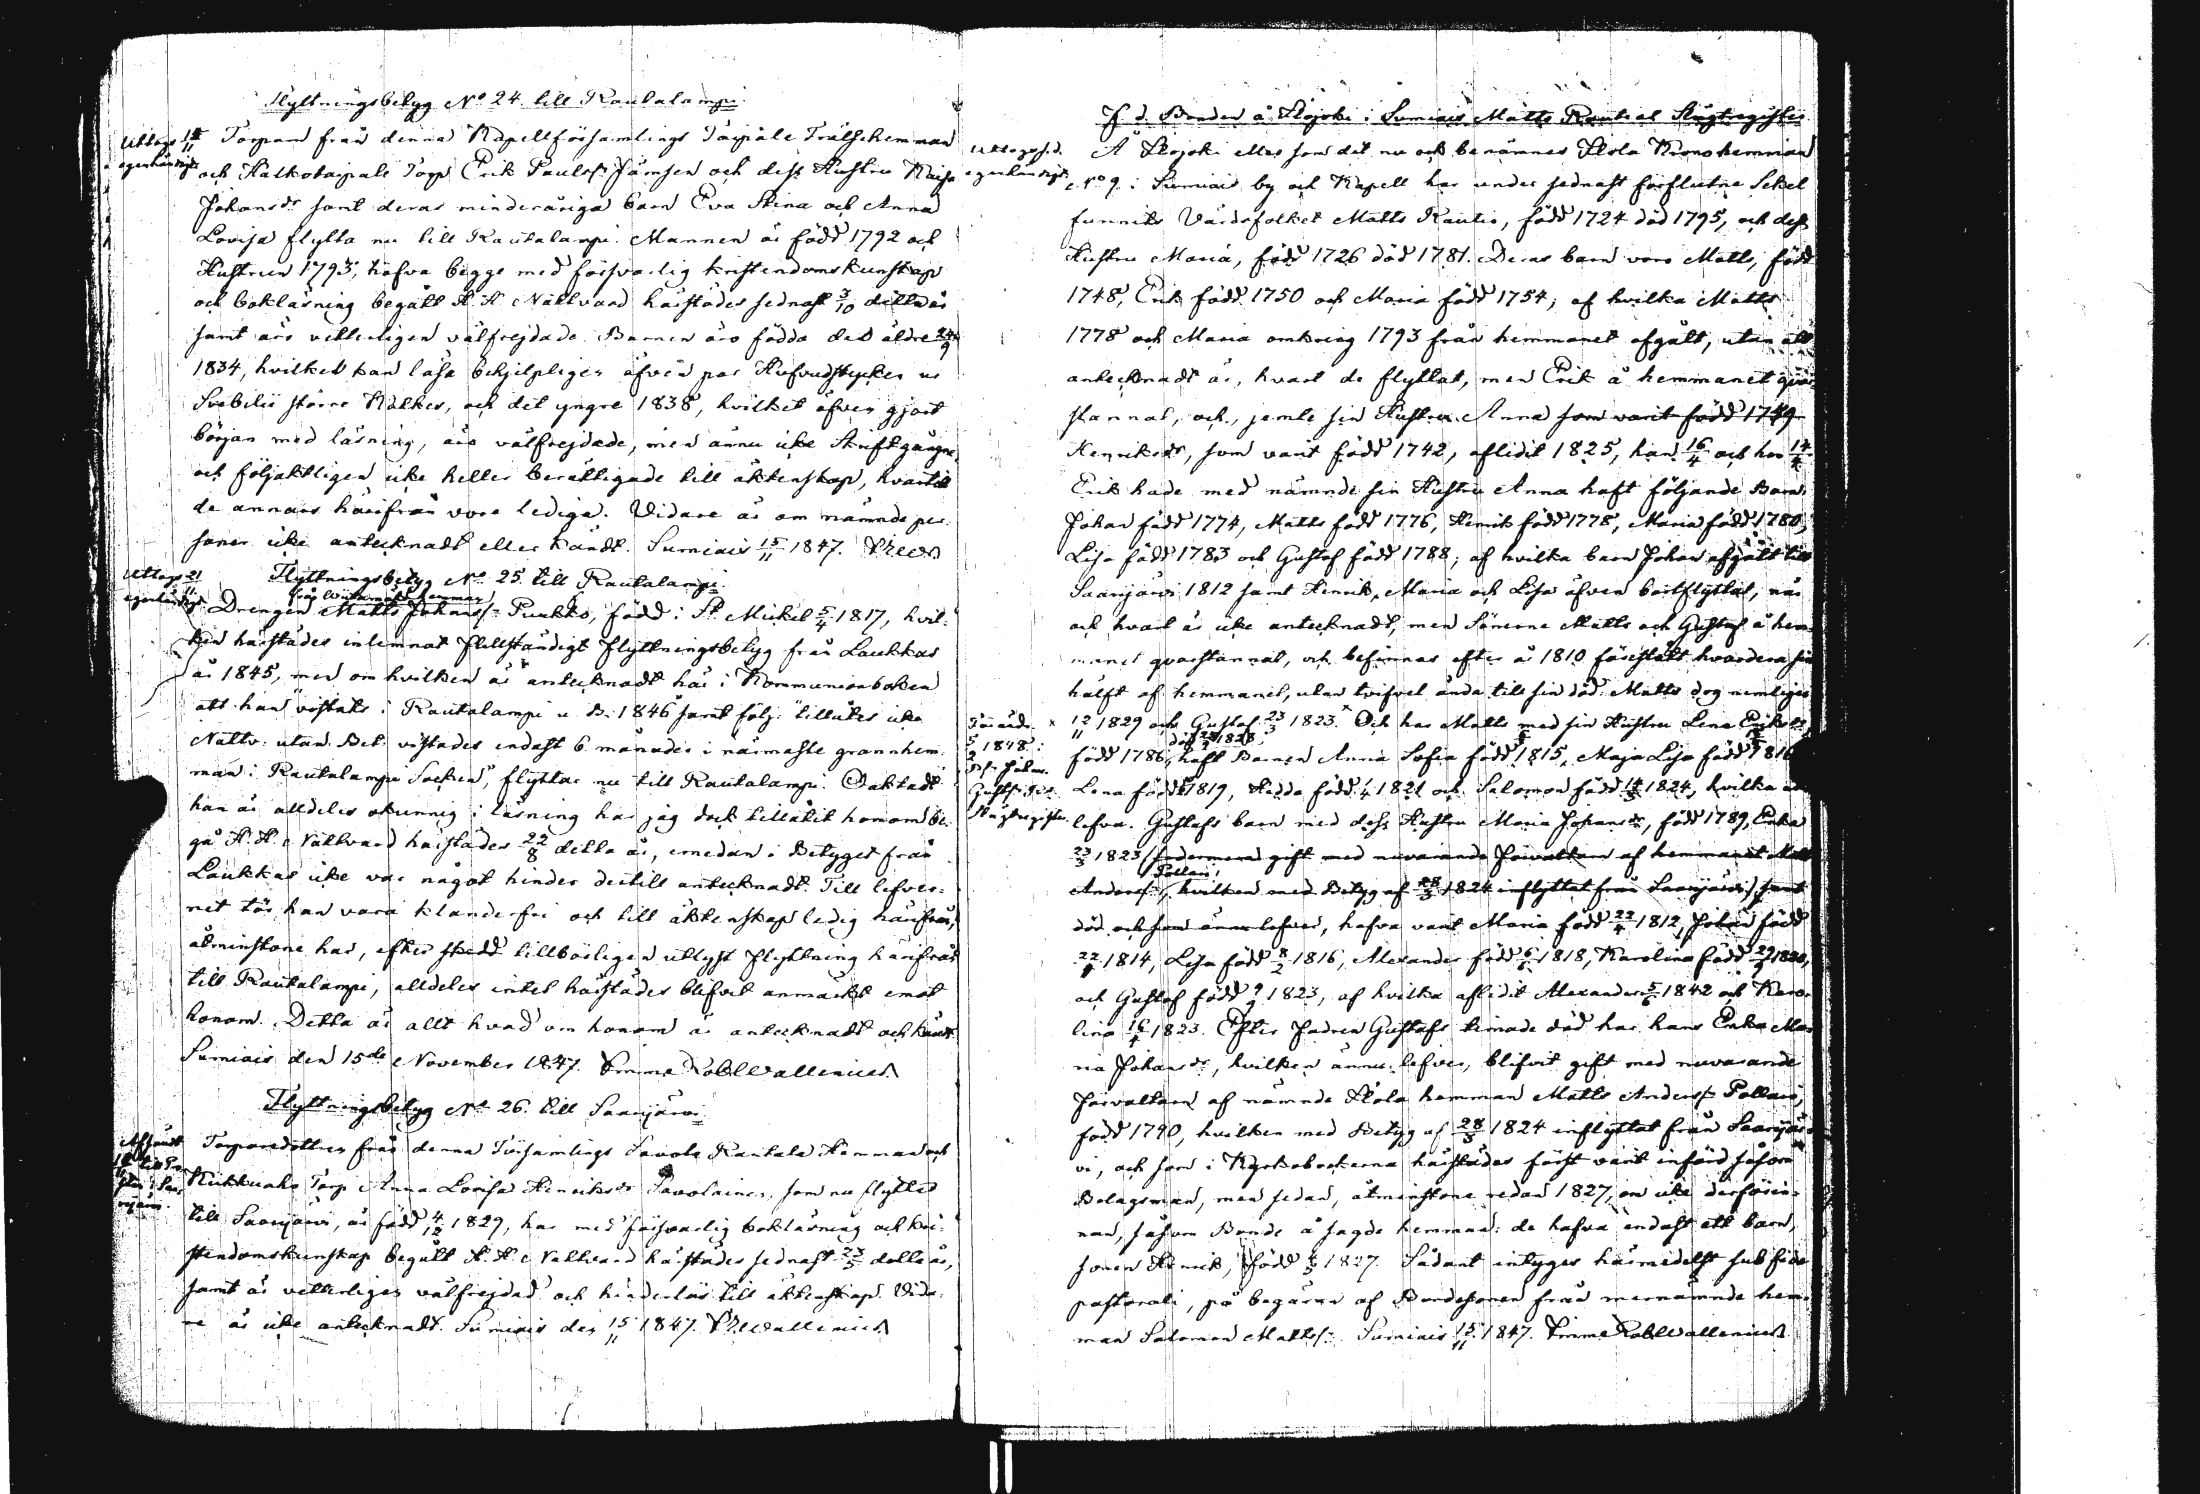 Flyttningsbetyg No 24. till Rautalampi.
Uttogs 15/11
egenhändigt
Torparn från denna Kapellförsamlings Taipale Frälsehemman
och Kalkotaipale Torp Erik Paulss. Jämsen och dess Hustru Kaisa
Johansdr samt deras minderåriga barn Eva Stina och Anna
Lovisa flytta nu till Rautalampi. Mannen är född 1792 och
Hustrun 1793, hafva begge med försvarlig kristendomskunskap
och bokläsning begått H. H. Nattvard härstädes sednast 3/10 detta år
samt äro vetterligen välfrejdade. Barnen äro födda det äldre 24/9
1834, hvilket kan läsa behjelpligen äfven par Hufvudstycken ur
Svebilii större Katkes, och det yngre 1838, hvilket äfven gjort
början med läsning, äro välfrejdade, men ännu icke Skriftgångne
och följaktligen icke heller berättigade till äktenskap, hvartill
de annars härifrån vore lediga. Vidare är om nämnde per-
soner icke antecknadt eller kändt. Sumiais 15/11 1847.
Uttogs 21/11
egenhändigt
Flyttningsbetyg No 25. till Rautalampi.
Drengen Matts Johanss. Puukko, född i St Michel 5/4 1817, hvil-
ken härstädes inlemnat fullständigt flyttningsbetyg från Laukkas
år 1845, men om hvilken är antecknadt här i Kommunionboken
att han "vistats i Rautalampi u. B. 1846 samt följ. tillåtes icke
Nattv. utan Bet. vistades endast 6 månader i närmaste grannhem-
man i Rautalampi Socken", flyttar nu till Rautalampi. Oaktadt
han är alldeles okunnig i läsning har jag dock tillåtit honom be-
gå H. H. Nattvard härstädes 22/8 detta år, emedan i Betyget från
Laukkas icke var något hinder dertill antecknadt. Till lefver-
net tör han vara klanderfri och till äktenskap ledig härifrån,
åtminstone har, efter skedd tillbörligen utlyst flyttning härifrån
till Rautalampi, alldeles intet härstädes blifvit anmärkt emot
honom. Detta är allt hvad om honom är antecknadt och kändt.
Sumiais den 15de November 1847. Wallenius
Flyttningsbetyg No 26. till Saarijärvi
Torparedottren från denna Församlings Savola Rantala Hemman och
Kukkuaho Torp Anna Lovisa Henriksdr Savolainen, som nu flyttar
till Saarijärvi, är född 4/12 1829, har med försvarlig bokläsning och kri-
stendomskunskap begått H. H. Nattvard härstädes sednast 23/5 detta år,
samt är vetterligen välfrejdad och hinderlös till äktenskap. Vida-
re är icke antecknadt. Sumiais den 15/11 1847. Wallenius
F. d. Bonden å Skojoki i Sumiais Matts Rauties Slägtregister.
Uttogs s. d.
egenhändigt
Å Skojoki eller som det nu ock benämnes Skola Kronohemman
No 9 i Sumiais by och Kapell har under sednast förflutne Sekel
funnits Värdsfolket Matts Rautio, född 1724 död 1795, och dess
Hustru Maria, född 1726 död 1781. Deras barn voro Matts, född
1748, Erik född 1750 och Maria född 1754; af hvilka Matts
1778 och Maria omkring 1793 från hemmanet afgått, utan att
antecknadt är, hvart de flyttat, men Erik å hemmanet qvar
stannat, och, jemte sin Hustru Anna som varit född 1749
Henriksdr, som varit född 1742, aflidit 1825, han 16/4 och hon 14/4.
Erik hade med nämnde sin Hustru Anna haft följande Barn:
Johan född 1774, Matts född 1776, Henrik född 1778, Maria född 1780,
Lisa född 1783 och Gustaf född 1788; af hvilka barn Johan afgått till
Saarijärvi 1812 samt Henrik, Maria och Lisa äfven bortflyttat, när
och hvart är icke antecknadt, men Sönerne Matts och Gustaf å hem-
manet qvarstannat, och befinnas efter år 1810 förestått hvardera sin
hälft af hemmanet, utan tvifvel ända till sin död. Matts dog nemligen
12/11 1829 och Gustaf 23/3 1823. Och har Matts med sin Hustru Lena Eriksdr
född 1786, haft Barnen Anna Sofia född 1815, Maja Lisa född 1816
Lena född 1819, Hedda född 1/4 1821 och Salomon född 14/3 1824, hvilka
lefva. Gustafs barn med dess Hustru Maria Johansdr, född 1789, Enka
23/3 1823 (sedermera gift med nuvarande förvaltaren af hemmanet Matts
Pollari
Anderss., hvilken med Betyg af 28/3 1824 inflyttat från Saarijärvi) samt
död och som ännu lefver, hafva varit Maria född 22/4 1812, Johan född
22/4 1814, Lisa född 8/2 1816, Alexander född 6/6 1818, Karolina född 29/9 1820,
och Gustaf född 9/9 1823, af hvilka aflidit Alexander 5/6 1842 och Karo-
lina 16/4 1823. Efter fadren Gustafs timade död har hans Enka Ma-
ria Johansdr, hvilken ännu lefver, blifvit gift med nuvarande
förvaltaren af nämnde Skola hemman Matts Anderss. Pollari,
född 1790, hvilken med Betyg af 28/3 1824 inflyttat från Saarijär-
vi, och som i Kyrkoböckerna härstädes först varit införd såsom
Bolagsman, men sedan, åtminstone redan 1827, om icke derförin-
nan, såsom Bonde å sagde hemman: de hafva endast ett barn,
sonen Henrik, född 4/3 1827. Sådant intygar härmedelst sub fide
pastorali, på begäran af Bondesonen från mernämnde hem-
man Salomon Mattss. Sumiais 15/11 1847. Wallenius